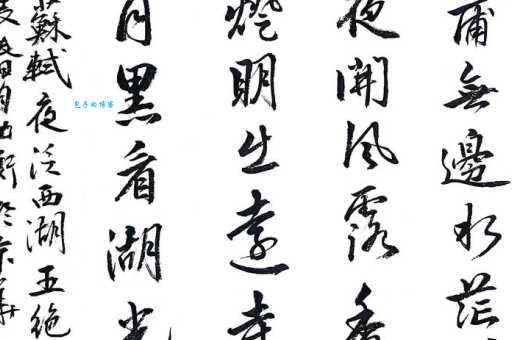 蒲無邊水茫
夜開風露香
燈明出遠寺
月黑看湖光
蘇軾夜泛西湖五絕
於京華
包子的博客